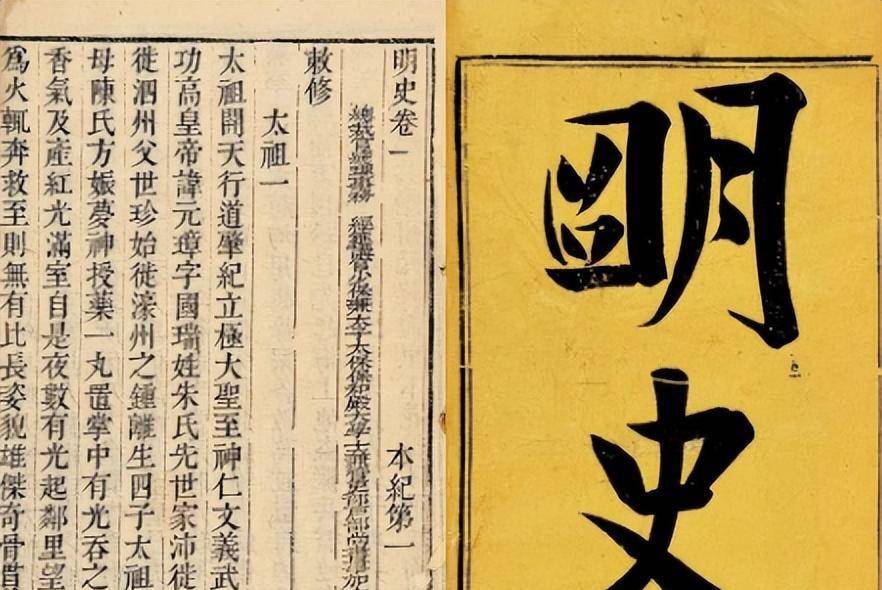 明史
明史卷一 本紀第一
總裁官總理事務 經筵講官少保兼太子太保保和殿大學士兼管吏部戶部尚書加
敕修
太祖一
太祖開天行道肇紀立極大聖至神仁文義武
功高皇帝諱元璋字國瑞姓朱氏先世家沛徙
徙泗州父世珍始徙濠州之鍾離生四子太祖
母陳氏方娠夢神授藥一丸置掌中有光吞之
香氣及產紅光滿室自是夜數有光起鄰里望
爲火輒奔救至則無有比長姿貌雄傑奇骨